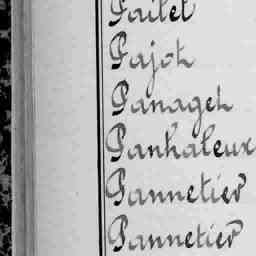 Pailet
Pajot
Panaget
Panhaleux
Pannetier
Pannetier